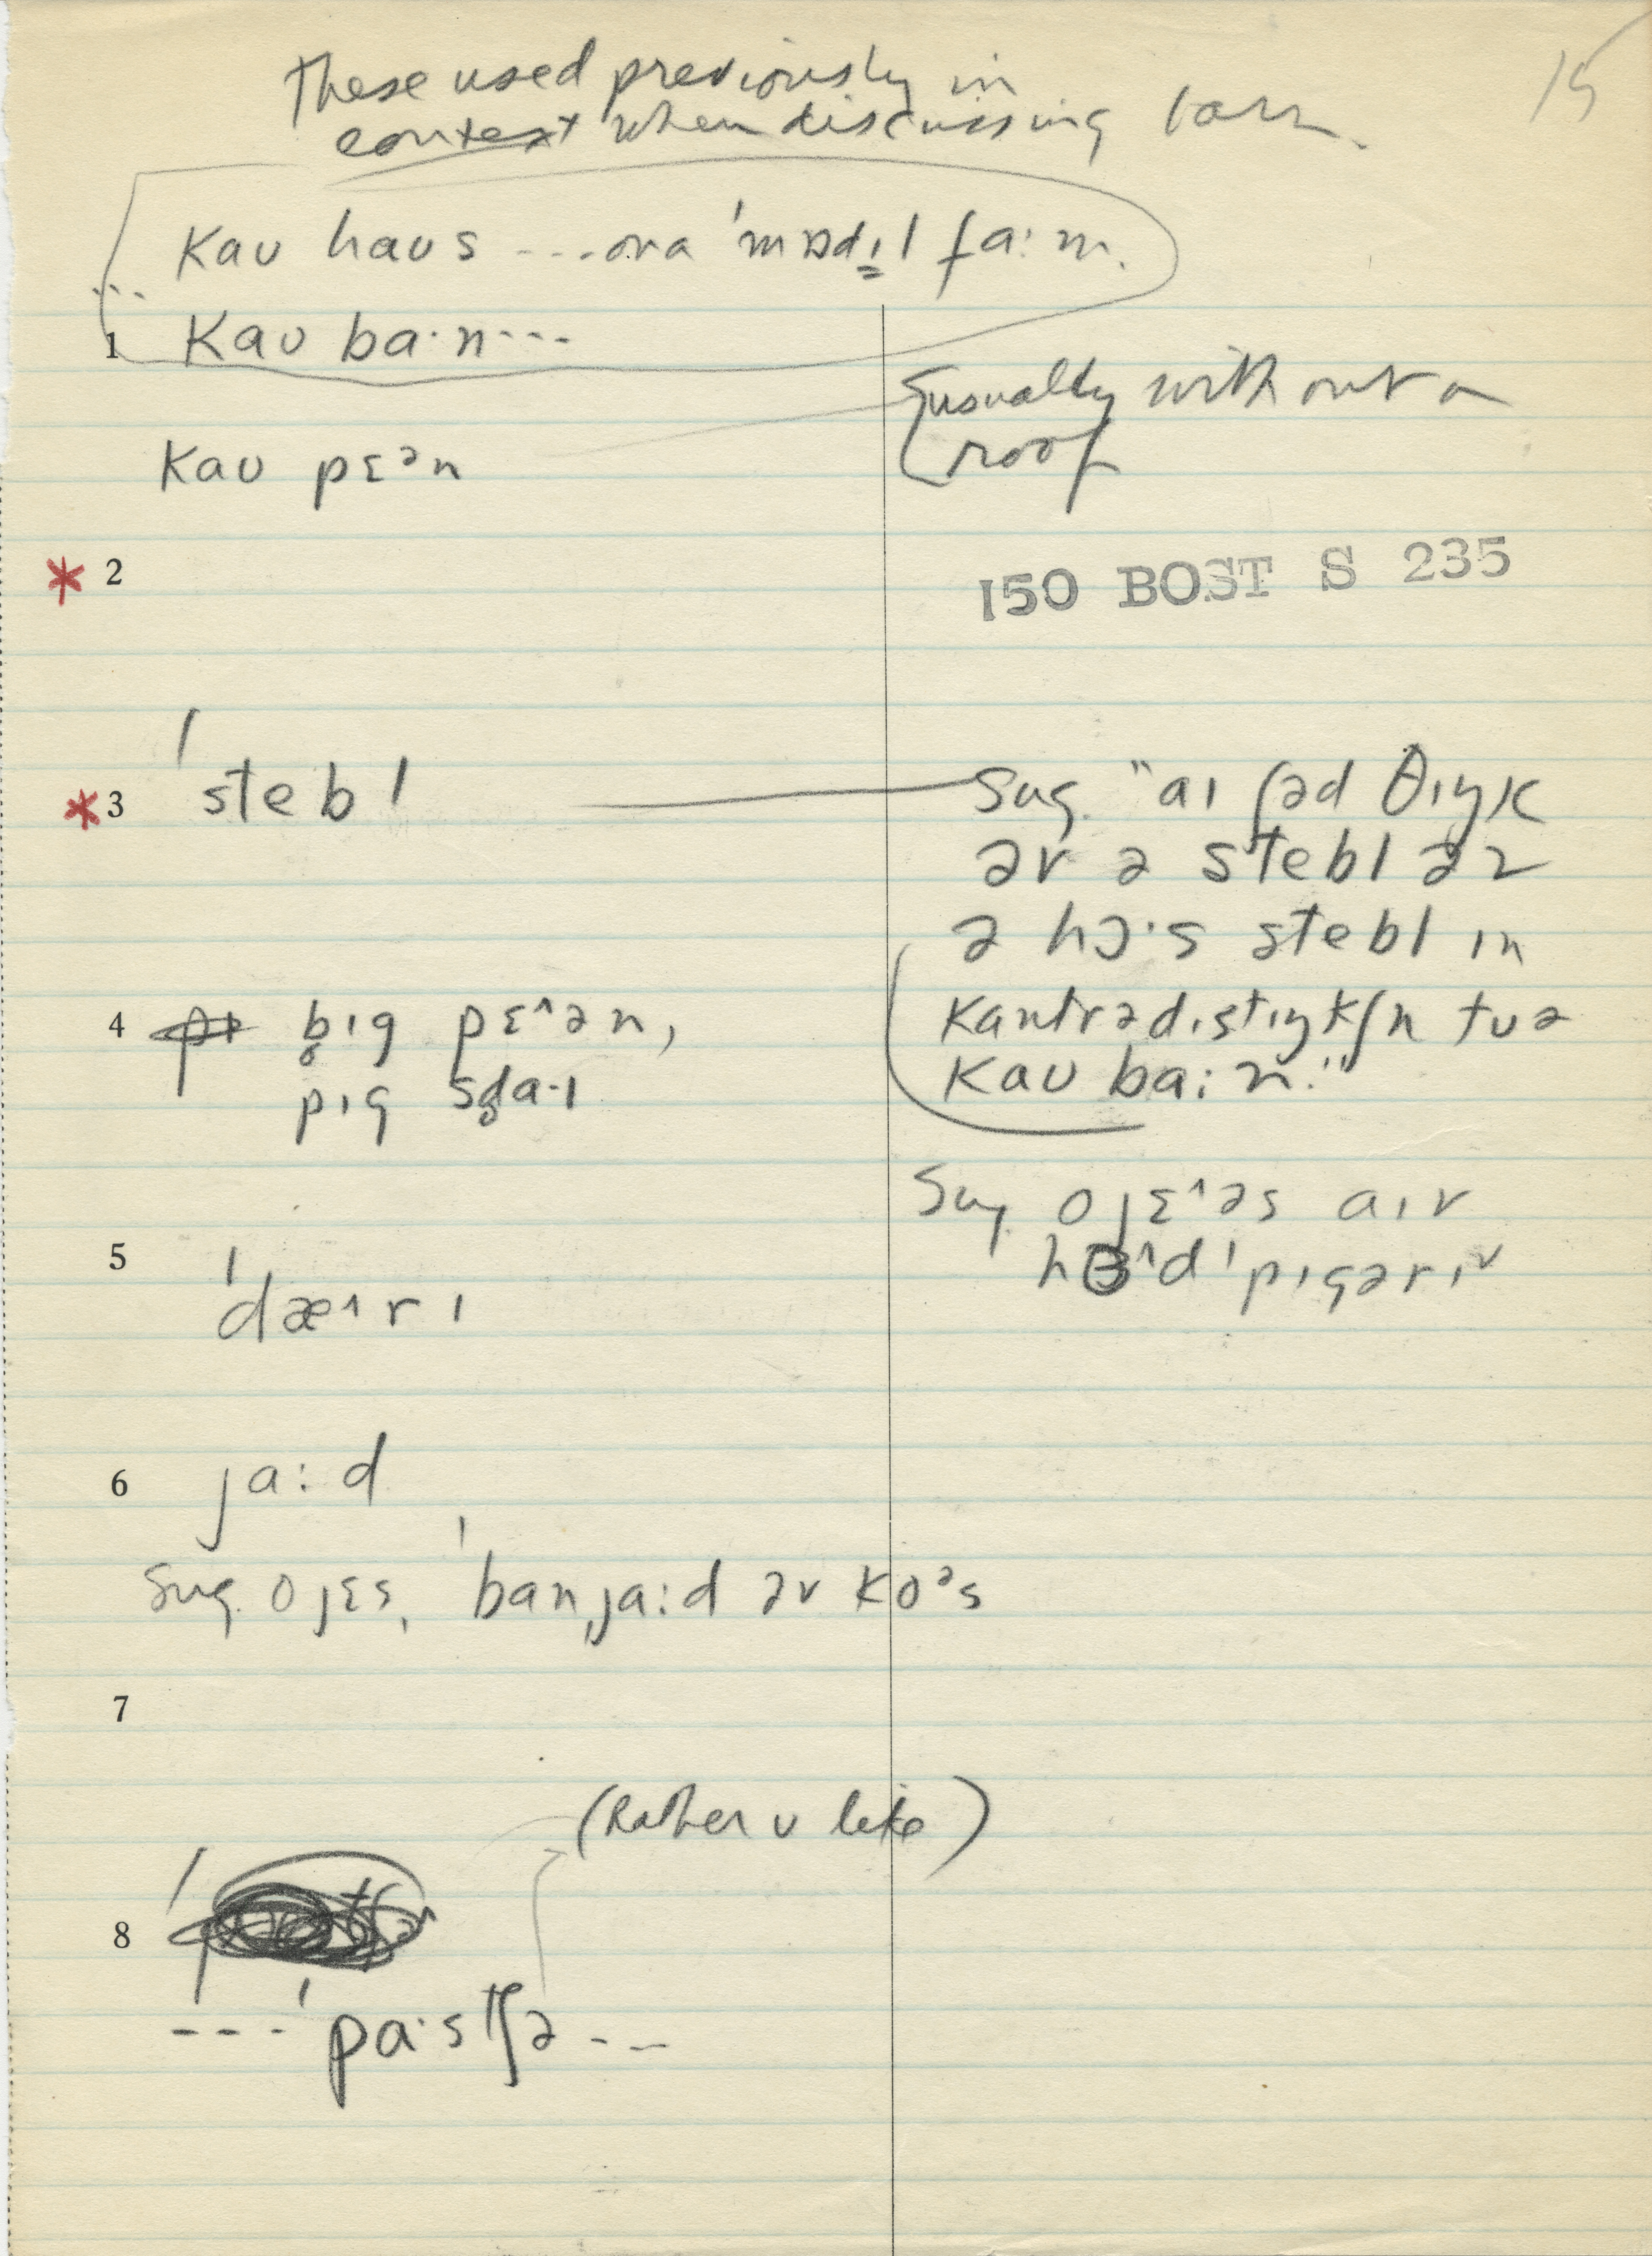 15
These used previously in
context when discussing barn.
kaʊ haʊs ....ɒnə ˈmɒdɪl fa:m.
1 kaʊ ba·n...
usually without a
roof
kaʊ pɛᵊn
* 2
150 BOST S 235
* 3 ˈstebl
Sug. "aɪ ʃəd θɪŋk
əv ə stebl əz
ə hɔ·s stebl ɪn
kantrədɪstɪŋkʃn tʊ ə
kaʊ ba:n."
4 b̥ɪg pɛ^ən,
pɪg sd̥a·ɪ
Sug. o jɛ^əs aɪv
h^d ˈpɪgərɪ˅
5 ˈdæ^ɪrɪ
6 ja:d
Sug. o jɛs, ˈbanˌja:d əv koᵊs
7
(Rather ʊ like)
8
--- ˈpa·stʃə ---